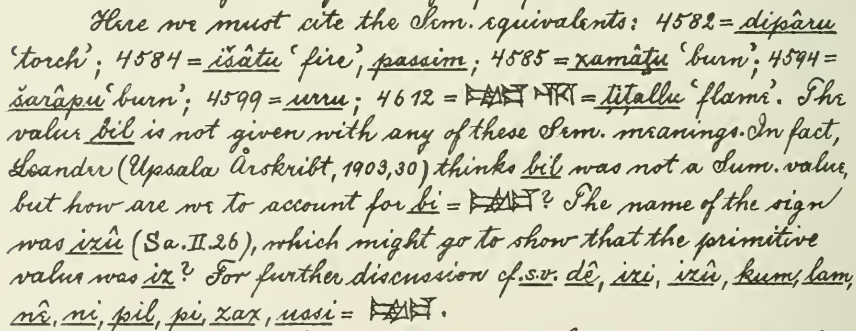 Here we must cite the Sem. equivalents: 4582 = dipâru
‘torch’; 4584 = išâtu ‘fire’, passim; 4585 = xamâṭu ‘burn’; 4594 =
šarâpu ‘burn’; 4599 = urru; 4612 = = ṭiṭallu ‘flame’. The
value bil is not given with any of these Sem. meanings. In fact,
Leander (Upsala Årskribt, 1903, 30) thinks bil was not a Sum. value,
but how are we to account for bi = ? The name of the sign
was izû (Sa. II. 26), which might go to show that the primitive
value was iz? For further discussion cf. s.v. dê, izi, izû, kum, lam,
nê, ni, pil, pi, zax, ussi = .